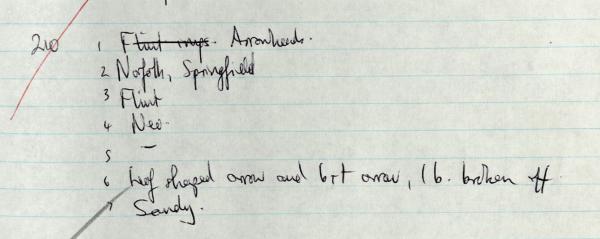 210 1 Flint imps. Arrowheads.
2 Norfolk, Springfield
3 Flint
4 Neo.
5 —
6 Leaf shaped arrow and b+t arrow, 1 b. broken off
7 Sandy.